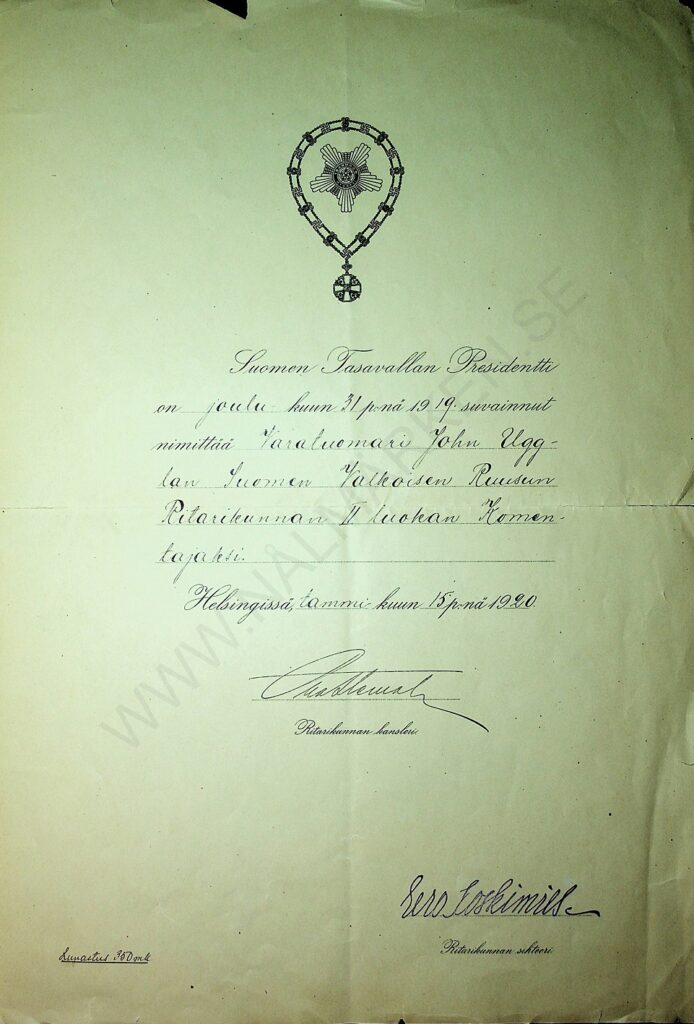 Suomen Tasavallan Presidentti
on joulu- kuun 31 p:nä 1919 suvainnut
nimittää Varatuomari John Ugg-
lan Suomen Valkoisen Ruusun
Ritarikunnan II luokan Komen-
tajaksi.
Helsingissä, tammi- kuun 15 p:nä 1920.
Ritarikunnan kansleri.
Eero
Ritarikunnan sihteeri.
Lunastus 350 mk
WWW.NALMARKEN.SE